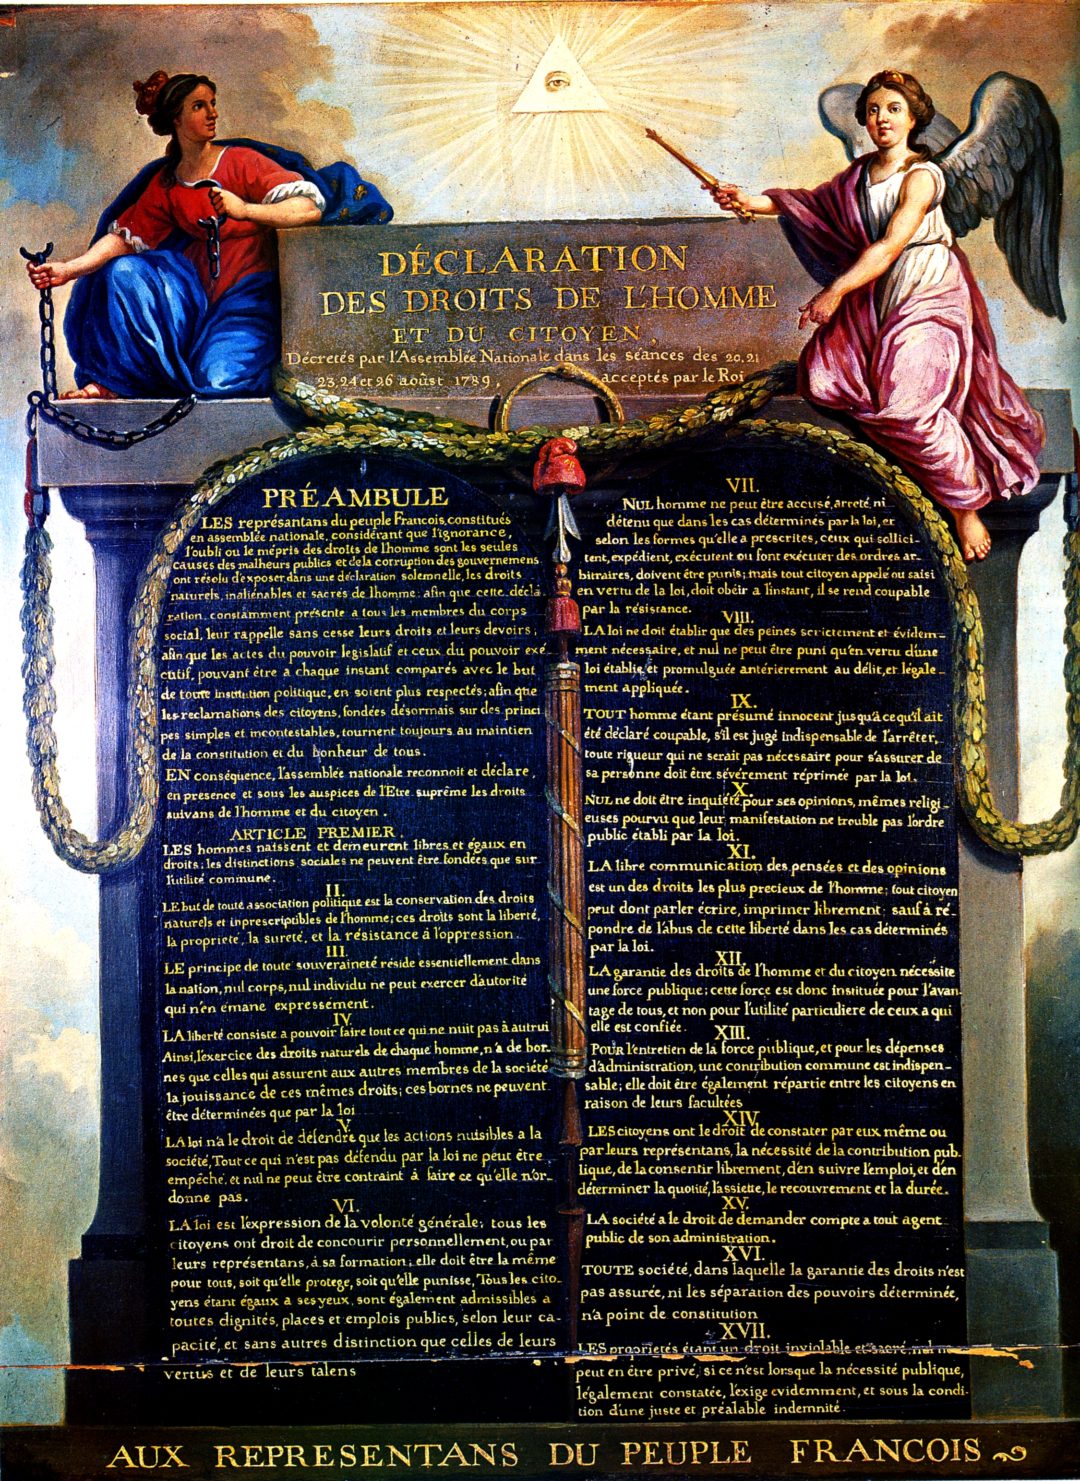 DÉCLARATION
DES DROITS DE L'HOMME
ET DU CITOYEN,
Décretés par l'Assemblée Nationale dans les séances des 20.21
23.24 et 26 aoûst 1789, acceptés par le Roi
PRÉAMBULE
LES représantans du peuple Francois, constitués
en assemblée nationale, considérant que l'ignorance,
l'oubli ou le mépris des droits de l'homme sont les seules
causes des malheurs publics et de la corruption des gouvernemens
ont résolu d'exposer dans une déclaration solemnelle, les droits
naturels, inaliénables et sacrés de l'homme; afin que cette décla
ration, constamment présente a tous les membres du corps
social, leur rappelle sans cesse leurs droits et leurs devoirs;
afin que les actes du pouvoir législatif et ceux du pouvoir exé
cutif, pouvant être a chaque instant comparés avec le but
de toute institution politique, en soient plus respectés; afin que
les reclamations des citoyens, fondées désormais sur des princi
pes simples et incontestables, tournent toujours au maintien
de la constitution et du bonheur de tous.
EN conséquence, l'assemblée nationale reconnoit et déclare,
en presence et sous les auspices de l'Etre suprême les droits
suivans de l'homme et du citoyen.
ARTICLE PREMIER.
LES hommes naissent et demeurent libres et égaux en
droits; les distinctions sociales ne peuvent être fondées que sur
l'utilité commune.
II.
LE but de toute association politique est la conservation des droits
naturels et inprescriptibles de l'homme; ces droits sont la liberté,
la propriete, la sureté, et la résistance à l'oppression.
III.
LE principe de toute souveraineté réside essentiellement dans
la nation, nul corps, nul individu ne peut exercer d'autorité
qui n'en émane expressement.
IV.
LA liberté consiste a pouvoir faire tout ce qui ne nuit pas à autrui
Ainsi, l'exercice des droits naturels de chaque homme, n'a de bor-
nes que celles qui assurent aux autres membres de la société
la jouissance de ces mêmes droits; ces bornes ne peuvent
être déterminées que par la loi
V.
LA loi n'a le droit de défendre que les actions nuisibles a la
société, Tout ce qui n'est pas défendu par la loi ne peut être
empêché, et nul ne peut être contraint à faire ce qu'elle n'or-
donne pas.
VI.
LA loi est l'expression de la volonté générale; tous les
citoyens ont droit de concourir personnellement, ou par
leurs représentans, à sa formation; elle doit être la même
pour tous, soit qu'elle protege, soit qu'elle punisse, Tous les cito-
yens étant égaux a ses yeux, sont également admissibles a
toutes dignités, places et emplois publics, selon leur ca-
pacité, et sans autres distinction que celles de leurs
vertus et de leurs talens
VII.
NUL homme ne peut être accusé, arreté, ni
détenu que dans les cas déterminés par la loi, et
selon les formes qu'elle a prescrites, ceux qui sollici-
tent, expédient, exécutent ou font exécuter des ordres ar-
bitraires, doivent être punis; mais tout citoyen appelé ou saisi
en vertu de la loi, doit obéir a l'instant, il se rend coupable
par la résistance.
VIII.
LA loi ne doit établir que des peines strictement et évidem-
ment nécessaire, et nul ne peut être puni qu'en vertu d'une
loi établie, et promulguée antérierement au délit, et légale-
ment appliquée.
IX.
TOUT homme étant présumé innocent jusqu'a ce qu'il ait
été déclaré coupable, s'il est jugé indispensable de l'arrêter,
toute rigueur qui ne serait pas nécessaire pour s'assurer de
sa personne doit être sévèrement réprimée par la loi.
X.
NUL ne doit être inquiété pour ses opinions, mêmes religi-
euses pourvu que leur manifestation ne trouble pas l'ordre
public établi par la loi.
XI.
LA libre communication des pensées et des opinions
est un des droits les plus precieux de l'homme; tout citoyen
peut dont parler écrire, imprimer librement; sauf à ré-
pondre de l'abus de cette liberté dans les cas déterminés
par la loi.
XII.
LA garantie des droits de l'homme et du citoyen nécessite
une force publique; cette force est donc instituée pour l'avan-
tage de tous, et non pour l'utilité particuliere de ceux a qui
elle est confiée.
XIII.
POUR l'entretien de la force publique, et pour les dépenses
d'administration, une contribution commune est indispen-
sable; elle doit être également répartie entre les citoyens en
raison de leurs facultées
XIV.
LES citoyens ont le droit de constater par eux même ou
par leurs représentans, la nécessité de la contribution pub-
lique, de la consentir librement, d'en suivre l'emploi, et d'en
déterminer la quotité, l'assiette, le recouvrement et la durée.
XV.
LA société a le droit de demander compte a tout agent
public de son administration.
XVI.
TOUTE société, dans laquelle la garantie des droits n'est
pas assurée, ni les séparation des pouvoirs déterminée,
n'a point de constitution
XVII.
LES propriétés étant un droit inviolable et sacré, nul ne
peut en être privé, si ce n'est lorsque la nécessité publique,
légalement constatée, l'exige evidemment, et sous la condi-
tion d'une juste et préalable indemnité.
AUX REPRESENTANS DU PEUPLE FRANCOIS